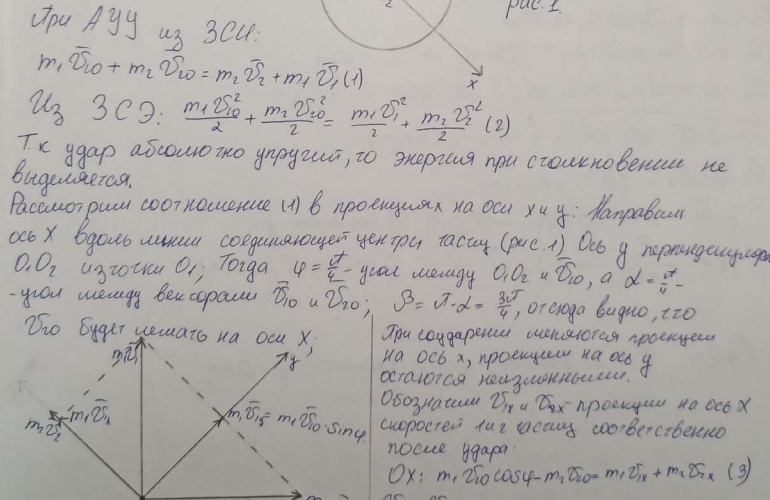 рис.1.
2
x
При АУУ из ЗСИ:
m₁v̄₁₀ + m₂v̄₂₀ = m₂v̄₂ + m₁v̄₁ (1)
Из ЗСЭ: m₁v₁₀²/2 + m₂v₂₀²/2 = m₁v₁²/2 + m₂v₂²/2 (2)
Т.к удар абсолютно упругий, то энергия при столкновении не
выделяется.
Рассмотрим соотношение (1) в проекциях на оси x и y: Направим
ось X вдоль линии соединяющей центры частиц (рис.1) Ось y перпендикулярн
O₁O₂ из точки O₁, Тогда φ = π/4 - угол между O₁O₂ и v̄₁₀, а α = π/4 -
- угол между векторами v̄₁₀ и v̄₂₀; β = π-α = 3π/4, отсюда видно, что
v₂₀ будет лежать на оси X;
m₁v̄₁
y
m₁v̄₁ₓ
m₁v̄₁y = m₁v̄₁₀·sinφ.
При соударении меняются проекции
на ось x, проекции на ось y
остаются неизменными.
Обозначим v̄₁ₓ и v̄₂ₓ - проекции на ось X
скоростей 1 и 2 частиц соответственно
после удара:
OX: m₁v₁₀cosφ - m₂v₂₀ = m₁v₁ₓ + m₂v₂ₓ (3)